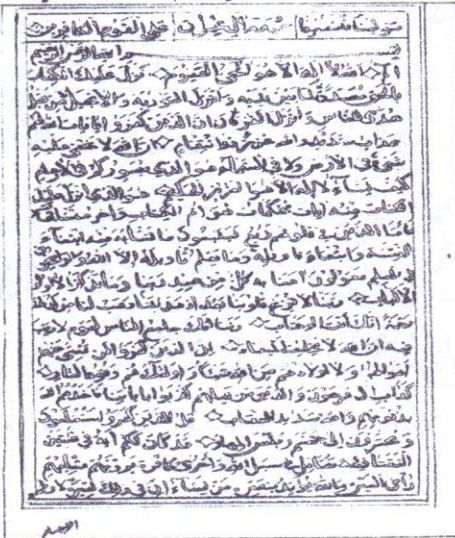 على القوم الكافرين سورة آل عمران مولينا فانصرنا
بسم الله الرحمن الرحيم
الم الله لا اله الا هو الحي القيوم نزل عليك الكتاب
بالحق مصدقا لما بين يديه وانزل التورية والانجيل من قبل
هدى للناس وانزل الفرقان ان الذين كفروا بايات الله لهم
عذاب شديد والله عزيز ذو انتقام ان الله لا يخفى عليه
شيء في الارض ولا في السماء هو الذي يصوركم في الارحام
كيف يشاء لا اله الا هو العزيز الحكيم هو الذي انزل عليك
الكتاب منه ايات محكمات هن ام الكتاب واخر متشابهات
فاما الذين في قلوبهم زيغ فيتبعون ما تشابه منه ابتغاء
الفتنة وابتغاء تاويله وما يعلم تاويله الا الله والراسخون
في العلم يقولون امنا به كل من عند ربنا وما يذكر الا اولوا
الالباب ربنا لا تزغ قلوبنا بعد اذ هديتنا وهب لنا من لدنك
رحمة انك انت الوهاب ربنا انك جامع الناس ليوم لا ريب
فيه ان الله لا يخلف الميعاد ان الذين كفروا لن تغني عنهم
اموالهم ولا اولادهم من الله شيئا واولئك هم وقود النار
كداب ال فرعون والذين من قبلهم كذبوا باياتنا فاخذهم الله
بذنوبهم والله شديد العقاب قل للذين كفروا ستغلبون
وتحشرون الى جهنم وبئس المهاد قد كان لكم اية في فئتين
التقتا فئة تقاتل في سبيل الله واخرى كافرة يرونهم مثليهم
راي العين والله يؤيد بنصره من يشاء ان في ذلك لعبرة لاولي
الابصار